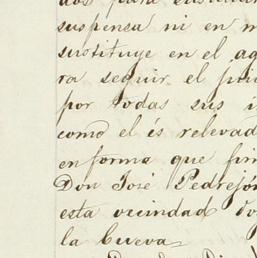 dos para sustituir
suspensa ni en m
sustituye en el ac
ra seguir el pri
por todas sus i
como el és relevad
en forma que fir
Don José Pedrejón
esta vecindad do
la Cueva